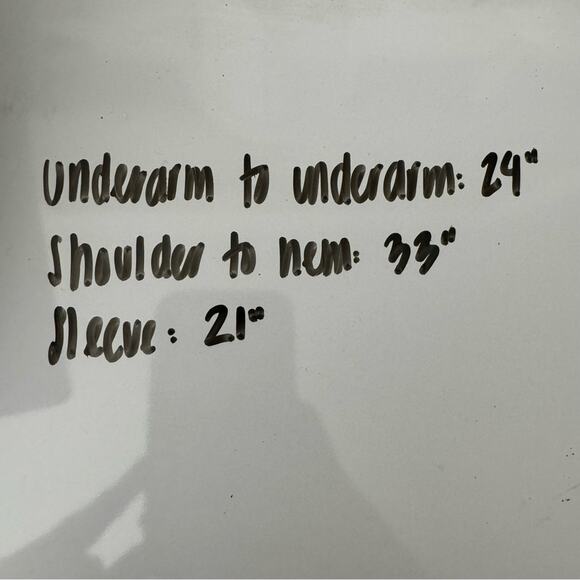 underarm to underarm: 24"
shoulder to hem: 33"
sleeve: 21"